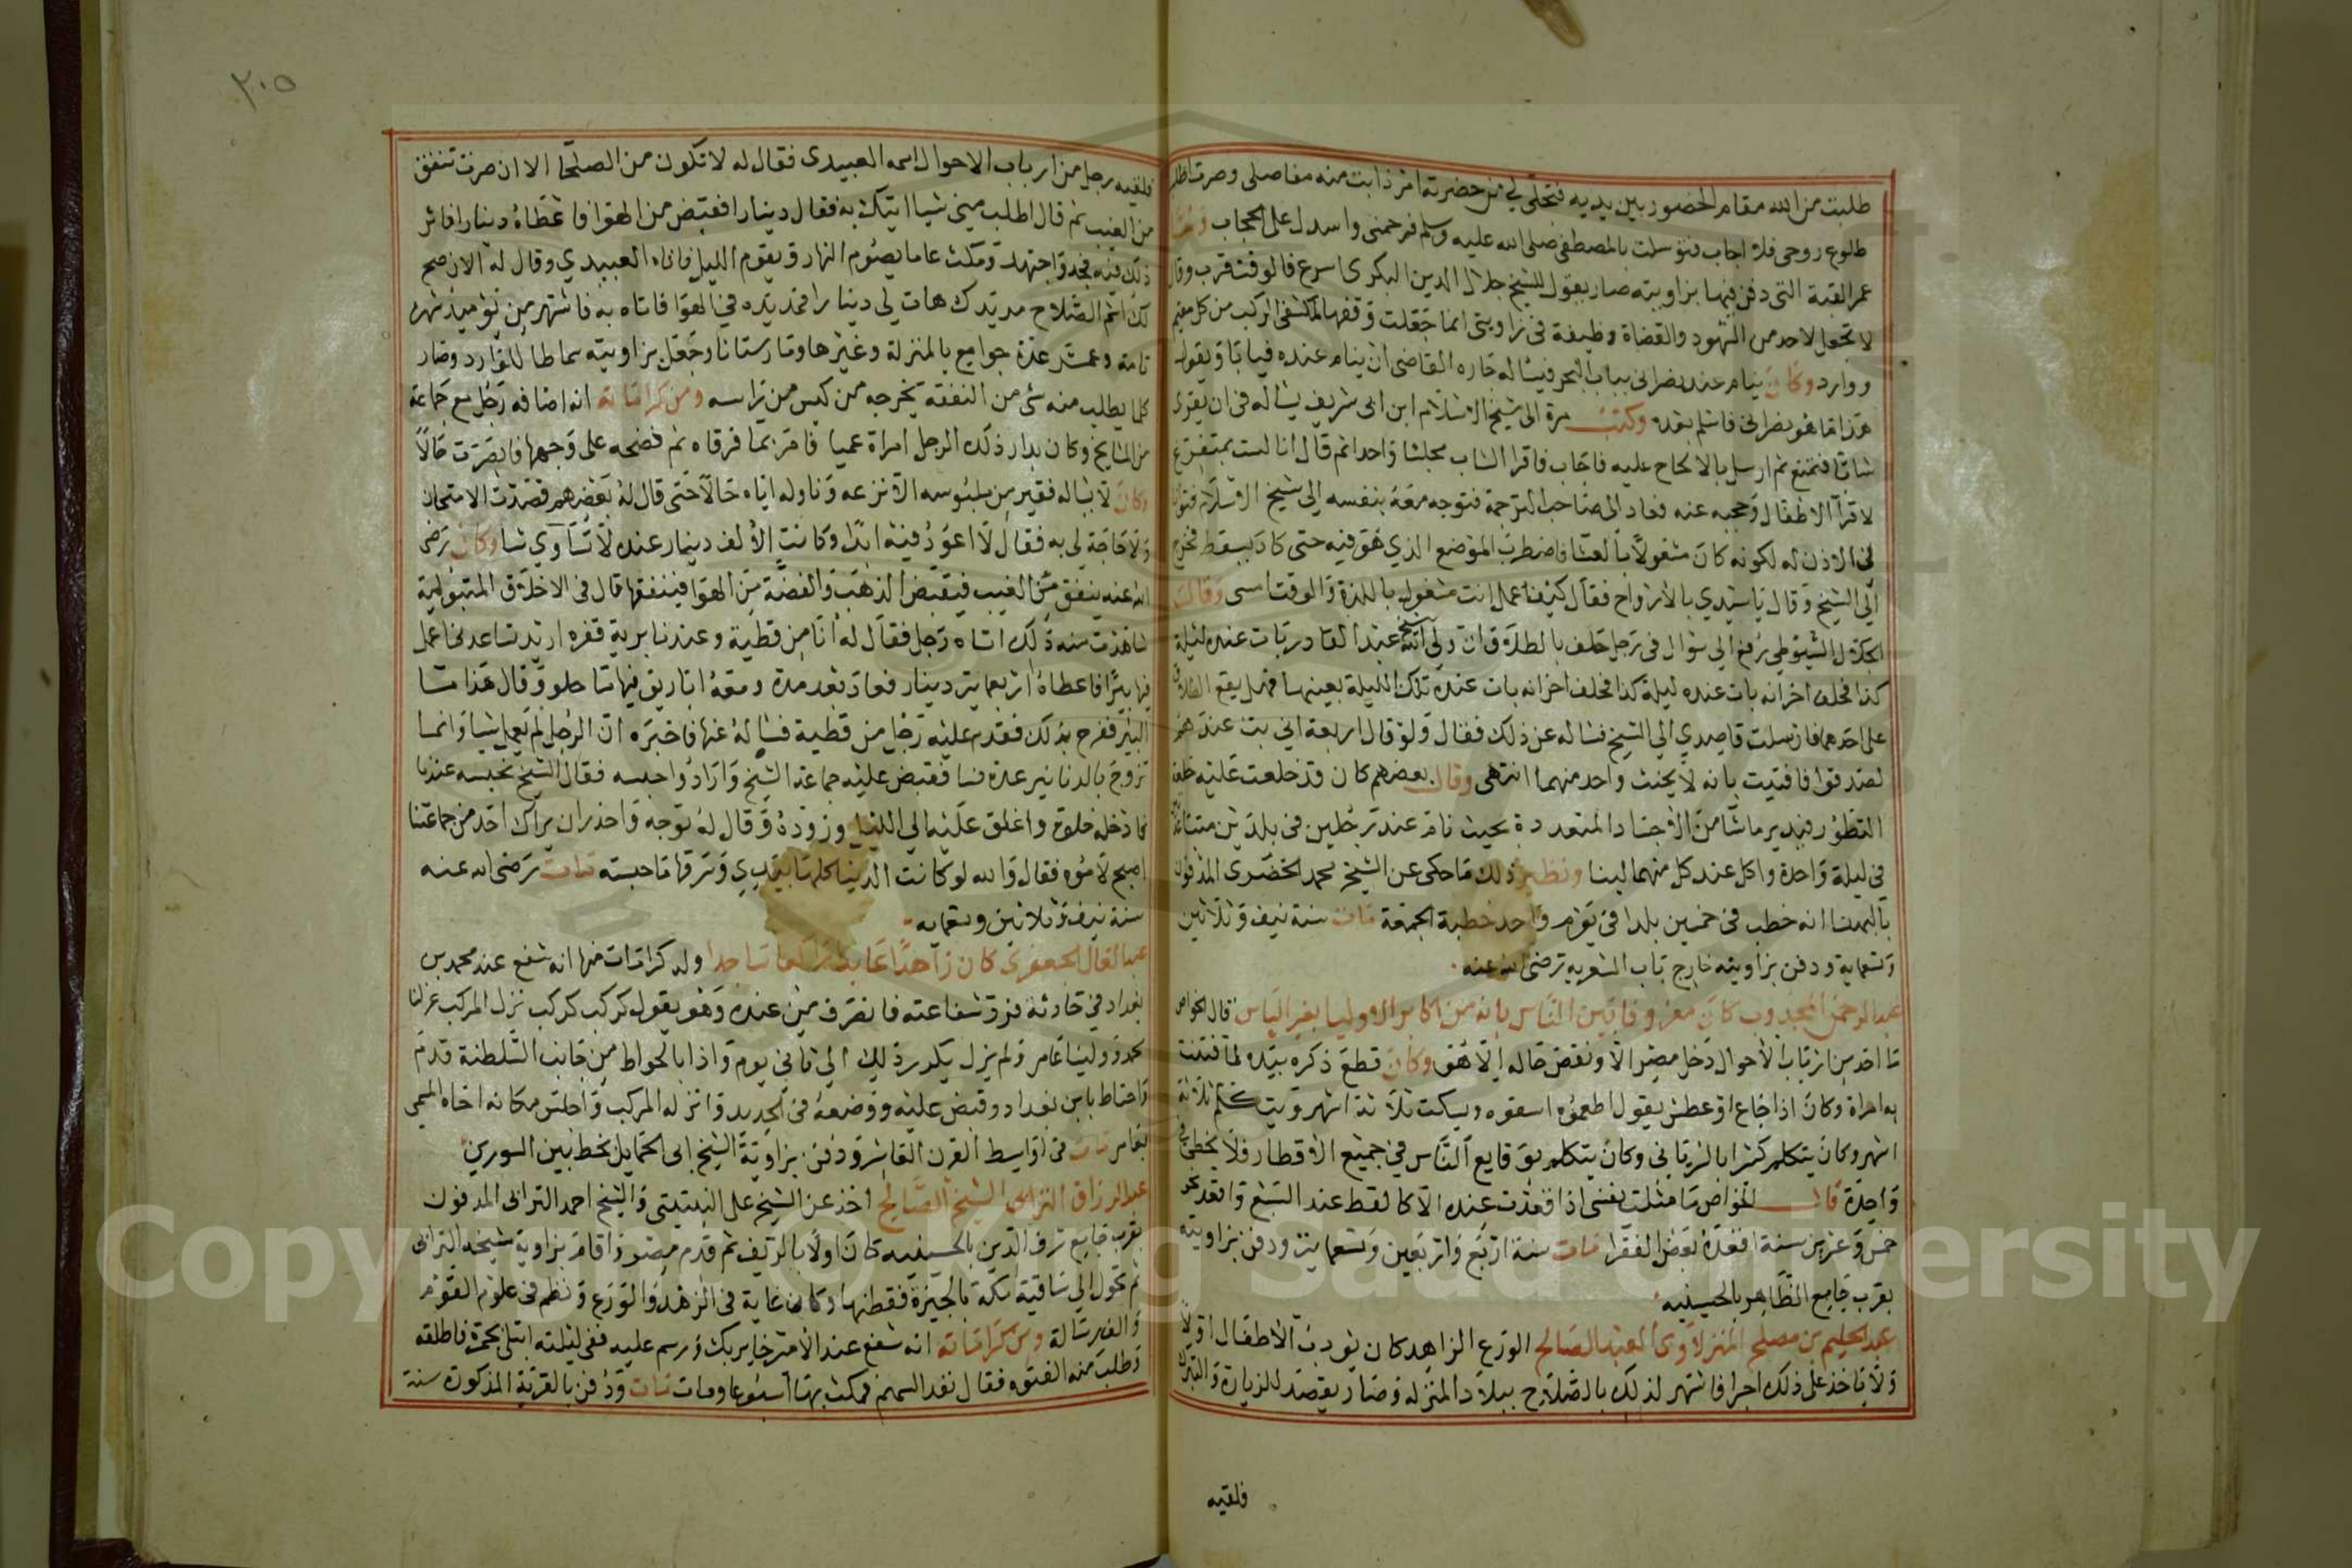 طلبت من الله مقام الحضور بين يديه فتجلى لي من حضرته امر ذابت منه مفاصلي وصرت اطلب
طلوع روحي فلا اجاب فتوسلت بالمصطفى صلى الله عليه وسلم فرحمني واسدل على الحجاب
عمر القبة التي دفن فيها بزاويته صار يقول للشيخ جلال الدين البكرى اسرع فالوقت قرب وقال
لا تجعل لاحد من الشهود والقضاة وظيفة في زاويتي انما جعلت وقفها لمكشفى الركب من كل مقيم
ووارد وكان ينام عند نصرانى بباب البحر فيساله جاره القاضى ان ينام عنده فيابا ويقول
هذا ما هو نصرانى فاسلم بعد وكتب مرة الى شيخ الاسلام ابن ابى شريف يساله فى ان يقرى
شابا فتمنع ثم ارسل بالالحاح عليه فاجاب فاقرا الشاب مجلسا واحدا ثم قال انا لست بمتفرغ
لاقرآ الاطفال وحجبه عنه فعاد الى صاحب الترجمة فتوجه معه بنفسه الى شيخ الاسلام
فى الاذن له لكونه كان مشغولا بالعشا فاضطرب الموضع الذي هو فيه حتى كاد يسقط فخرج
الى الشيخ وقال يا سيدي بالارواح فقال كيف اعمل انت مشغول باللذة والوقت امسى وقال
الجلال السيوطي رفع الي سؤال فى رجل حلف بالطلاق ان ولي الله الشيخ عبد القادر بات عنده ليلة
كذا فحلف اخر انه بات عنده ليلة كذا فحلف اخر انه بات عنده تلك الليلة بعينها فهل يقع الطلاق
على احدهما فارسلت قاصدي الى الشيخ فساله عن ذلك فقال ولو قال اربعة اني بت عندهم
لصدقوا فافتيت بانه لا يحنث واحد منهما انتهى وقال بعضهم كان قد خلعت عليه خلعة
التطور فيدير ماشا من الاجساد المتعددة بحيث نام عند رجلين فى بلدين
فى ليلة واحدة واكل عند كل منهما لبنا ونظير ذلك ما حكى عن الشيخ محمد الخضرى المدفون
بالبهنسا انه خطب فى خمسين بلدا فى يوم واحد خطبة الجمعة مات سنة نيف وثلاثين
وتسعماية ودفن بزاويته خارج باب الشعريه رضى الله عنه
عبد الرحمن المجذوب كان معروفا بين الناس بانه من اكابر الاوليا بغير الباس قال الخواص
ما احد من ارباب الاحوال دخل مصر الا ونقص حاله الا هو وكان قطع ذكره بيده لما فتنت
به امراة وكان اذا جاع او عطش يقول اطعموه اسقوه ويسكت ثلاثة اشهر ويتكلم ثلاثة
اشهر وكان يتكلم كثيرا بالسريانى وكان يتكلم بوقايع الناس في جميع الاقطار فلا يخطئ في
واحدة قال الخواص ما مثلت نفسى اذا قعدت عنده الا كالقط عند السبع واقعد نحو
خمس وعشرين سنة اقعده بعض الفقرا مات سنة اربع واربعين وتسعماية ودفن بزاويته
بقرب جامع الظاهر بالحسينيه
عبد الحليم بن مصلح المنزلاوى العبد الصالح الورع الزاهد كان يؤدب الاطفال اولا
ولا ياخذ على ذلك اجرا فاشتهر لذلك بالصلاح ببلاد المنزلة وصار يقصد للزيارة والتبرك
فلقيه
٢٠٥
فلقيه رجل من ارباب الاحوال اسمه العبيدى فقال له لا تكون من الصلحا الا ان صرت تنفق
من الغيب ثم قال اطلب مني شيا اتيك به فقال دينارا فقبض من الهوا فاعطاه دينارا فاثر
ذلك فيه فجد واجتهد ومكث عاما يصوم النهار ويقوم الليل فاتاه العبيدي وقال له الان صح
لك اسم الصلاح مد يدك هات لي دينارا فمد يده في الهوا فاتاه به فاشتهر من يوميذ شهرة
تامة وعمر عدة جوامع بالمنزلة وغيرها ومارستانا وجعل بزاويته سماطا للوارد وصار
كلما يطلب منه شى من النفقة يخرجه من كيس من راسه ومن كراماته انه اضافه رجل مع جماعة
من المشايخ وكان بدار ذلك الرجل امراة عميا فامر بما فرقاه ثم فضحه على وجهها فابصرت حالا
وكان لا يساله فقير من ملبوسه الا نزعه وناوله اياه حالا حتى قال له بعضهم قصدت الامتحان
ولا حاجة لي به فقال لا اعود فيه ابدا وكانت الالف دينار عنده لا تساوي شيا وكان رضى
الله عنه ينفق من الغيب فيقبض الذهب والفضة من الهوا فينفقها قال فى الاخلاق المتبولية
شاهدت منه ذلك اتاه رجل فقال له انا من قطية وعندنا برية قفره اريد تساعدنى اعمل
فيها بيرا فاعطاه اربعماية دينار فعاد بعد مدة ومعه اباريق فيها ما حلو وقال هذا من ما
البير ففرح بذلك فقدم عليه رجل من قطية فساله عنها فاخبره ان الرجل لم يعمل شيا وانما
تزوج بالدنانير عدة نسا فقبض عليه جماعة الشيخ وارادوا حبسه فقال الشيخ نحبسه عندنا
فادخله خلوة واغلق عليه الى الليل وزوده وقال له توجه واحذر ان يراك احد من جماعتنا
اصبح لاموه فقال والله لو كانت الدنيا كلها بيدي وسرقها ما حبسته مات رضى الله عنه
سنة نيف وثلاثين وتسعمايه
عبد العال الجعفرى كان زاهدا عابدا راكعا ساجدا وله كرامات منها انه شفع عند محمد بن
بغداد في حادثة فرد شفاعته فانصرف من عنده وهو يقول كركب كركب نزل المركب عزلنا
محمد وولينا عامر ولم يزل يكرر ذلك الى ثاني يوم واذا بالحواط من جانب السلطنة قدم
واحتاط بابن بغداد وقبض عليه ووضعه فى الحديد وانزله المركب واجلس مكانه اخاه المسمى
بعامر مات فى اواسط القرن العاشر ودفن بزاوية الشيخ ابى الحمايل بخط بين السورين
عبد الرزاق الترابى الشيخ الصالح اخذ عن الشيخ على النبتيتى والشيخ احمد الترابى المدفون
بقرب جامع شرف الدين بالحسينيه كان اولا بالريف ثم قدم مصر واقام بزاوية شيخه الترابى
ثم تحول الى ساقية مكة بالجيزة فقطنها وكان غاية فى الزهد والورع ونظم فى علوم القوم
والف رسالة ومن كراماته انه شفع عند الامير جاير بك ورسم عليه ففى ليلته ابتلى بجمرة فاطلقه
وطلب منه العفو فقال نفد السهم فمكث بها اسبوعا ومات مات ودفن بالقرية المذكورة سنة
Copyright © King Saud University